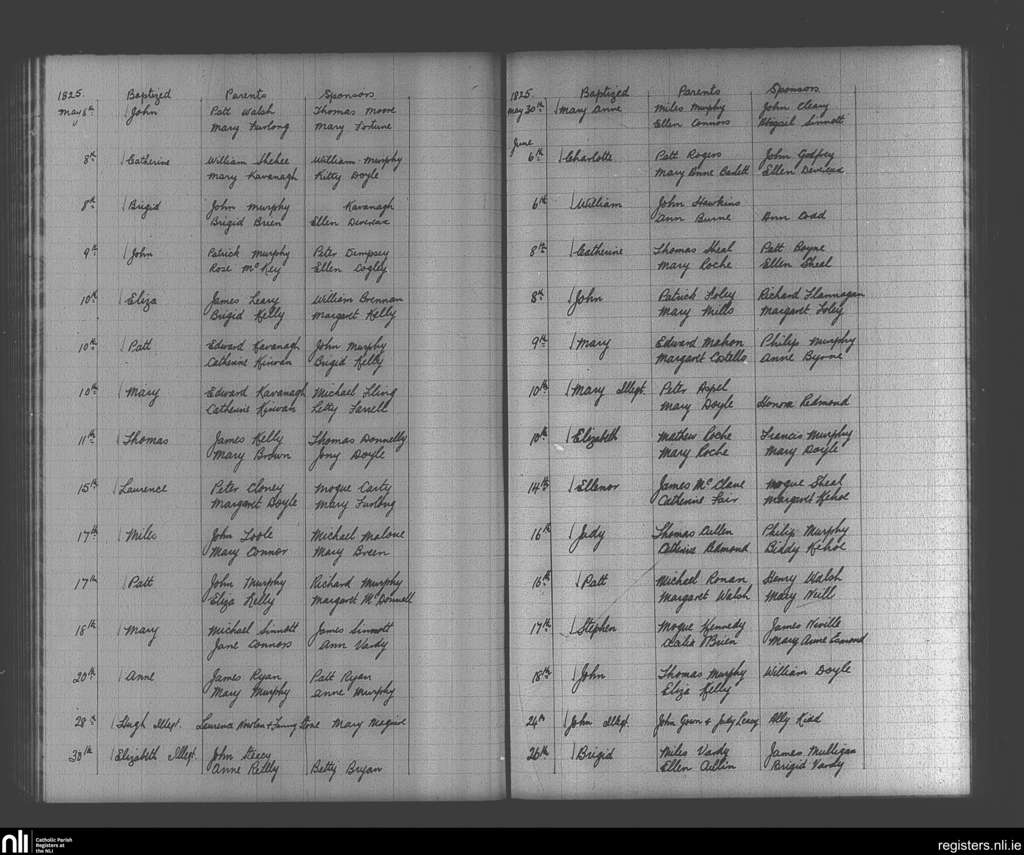 1825. Baptized Parents Sponsors
May 8th John Patt Walsh Thomas Moore
Mary Furlong Mary Fortune
8th Catherine William Shehee William Murphy
Mary Kavanagh Kitty Doyle
8th Brigid John Murphy Kavanagh
Brigid Brien Ellen Devereux
9th John Patrick Murphy Peter Dempsey
Rose McKey Ellen Cogley
10th Eliza James Leary William Brennan
Brigid Kelly Margaret Kelly
10th Patt Edward Kavanagh John Murphy
Catherine Kinvan Brigid Kelly
10th Mary Edward Kavanagh Michael Fling
Catherine Kinvan Letty Farrell
11th Thomas James Kelly Thomas Donnelly
Mary Brown Jony Doyle
15th Laurence Peter Cloney Mogue Carty
Margaret Doyle Mary Furlong
17th Miles John Toole Michael Malone
Mary Connor Mary Breen
17th Patt John Murphy Richard Murphy
Eliza Kelly Margaret McDonnell
18th Mary Michael Sinnott James Sinnott
Jane Connors Ann Vardy
20th Anne James Ryan Patt Ryan
Mary Murphy Anne Murphy
28th Hugh Illegt. Laurence Nowlan & Fanny Stone Mary Maguire
30th Elizabeth Illegt. John
Anne Reilly Betty Bryan
1825. Baptized Parents Sponsors.
May 30th Mary Anne Miles Murphy John Cleary
Ellen Connors Abigail Sinnott
June
6th Charlotte Patt Rogers John Godfrey
Mary Anne Ellen Devereux
6th William John Hawkins
Ann Burne Ann Codd
8th Catherine Thomas Sheal Patt Bayne
Mary Roche Ellen Sheal
8th John Patrick Foley Richard Flannagan
Mary Mills Margaret Foley
9th Mary Edward Mahon Philip Murphy
Margaret Costello Anne Byrne
10th Mary Illegt. Peter Aspel
Mary Doyle Honora Redmond
10th Elizabeth Mathew Roche Francis Murphy
Mary Roche Mary Doyle
14th Ellenor James McClane Mogue Sheal
Catherine Fair Margaret Kehoe
16th Judy Thomas Cullen Philip Murphy
Catherine Redmond Biddy Kehoe
16th Patt Michael Ronan Henry Walsh
Margaret Walsh Mary Neill
17th Stephen Mogue Kennedy James Neville
O'Brien Mary Anne Esmond
18th John Thomas Murphy William Doyle
Eliza Kelly
24th John Illegt. John Gown & Judy Leacy Ally Kidd
26th Brigid Miles Vardy James Mulligan
Ellen Cullin Brigid Vardy
nli Catholic Parish
Registers at
the NLI
registers.nli.ie